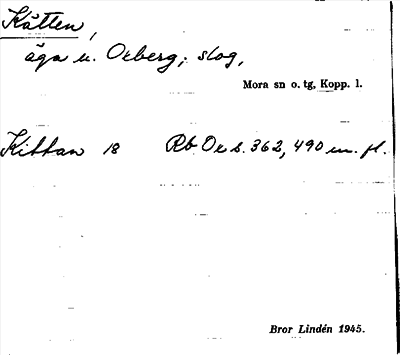 Kåtten,
äga u. Orberg; slog,
Mora sn o. tg, Kopp. l.
Kittan 18 Rb Or s. 362, 490 m. fl.
Bror Lindén 1945.